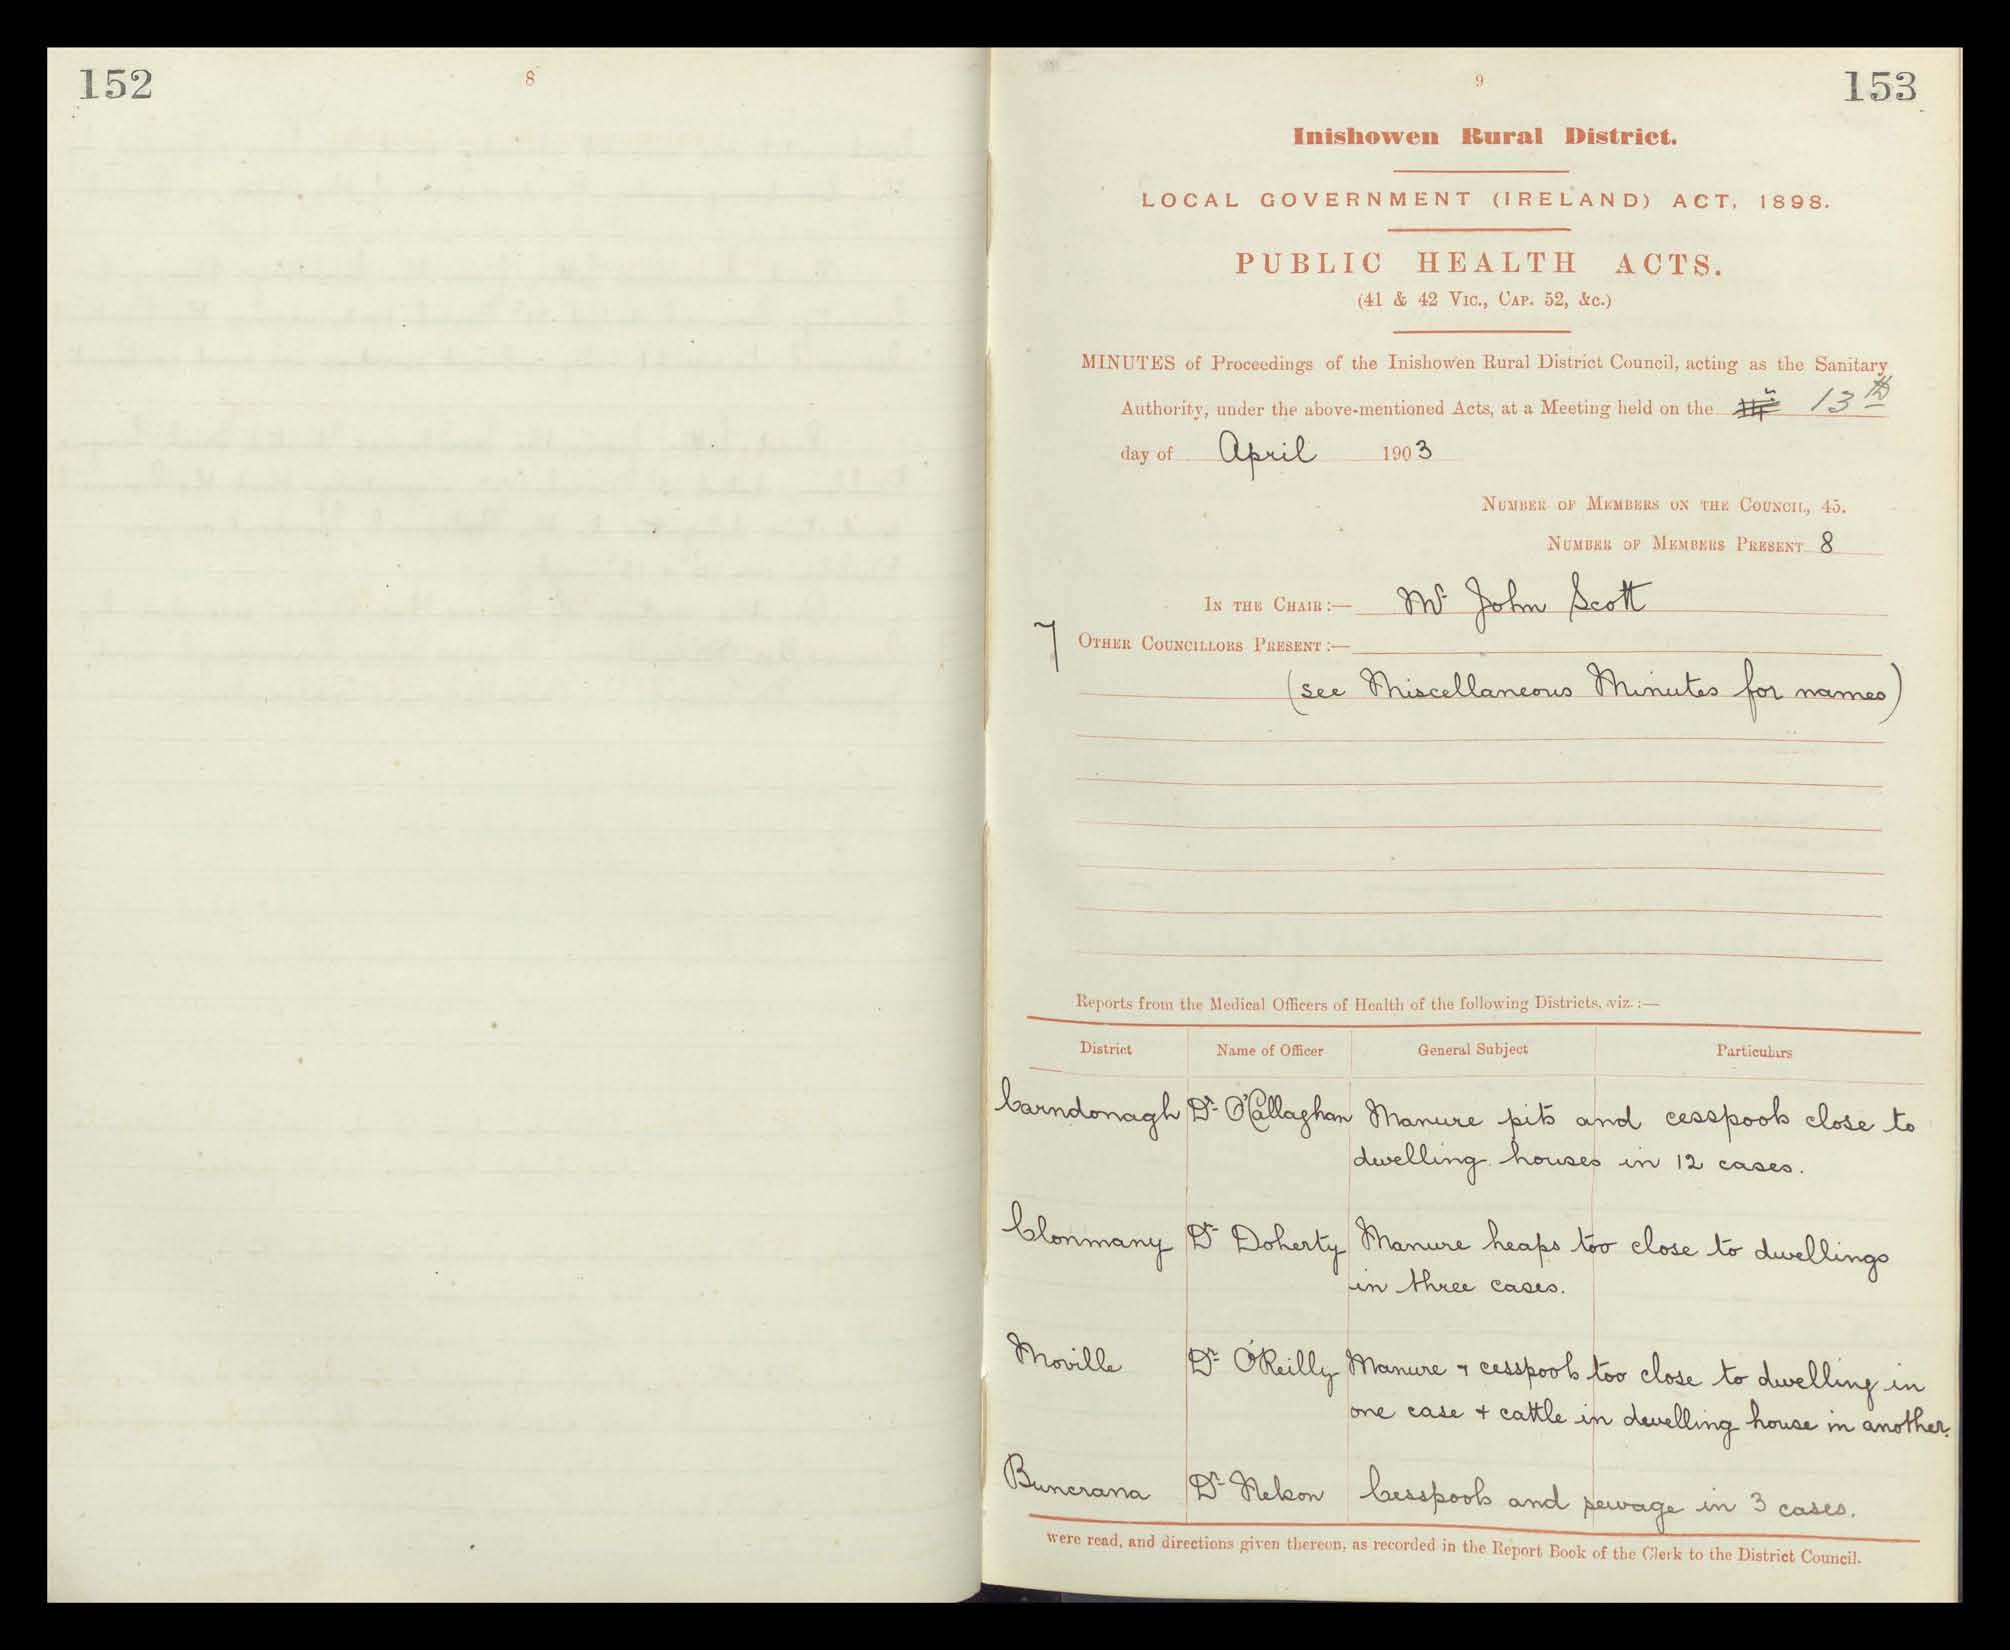 152
8
9
153
Inishowen Rural District.
LOCAL GOVERNMENT (IRELAND) ACT, 1898.
PUBLIC HEALTH ACTS.
(41 & 42 Vic., Cap. 52, &c.)
MINUTES of Proceedings of the Inishowen Rural District Council, acting as the Sanitary
Authority, under the above-mentioned Acts, at a Meeting held on the 13th
day of April 1903
Number of Members on the Council, 45.
Number of Members Present 8
In the Chair:— Mr John Scott
7 Other Councillors Present:—
(see Miscellaneous Minutes for names)
Reports from the Medical Officers of Health of the following Districts, viz.:—
District Name of Officer General Subject Particulars
Carndonagh Dr. O'Callaghan Manure pits and cesspools close to
dwelling houses in 12 cases.
Clonmany Dr. Doherty Manure heaps too close to dwellings
in three cases.
Moville Dr. O'Reilly Manure & cesspools too close to dwelling in
one case & cattle in dwelling house in another.
Buncrana Dr. Nelson Cesspools and sewage in 3 cases.
were read, and directions given thereon, as recorded in the Report Book of the Clerk to the District Council.